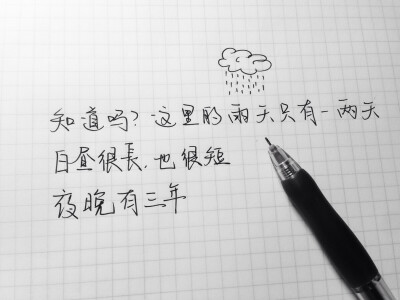 知道吗?这里的雨天只有一两天
白昼很長.也很短
夜晚有三年